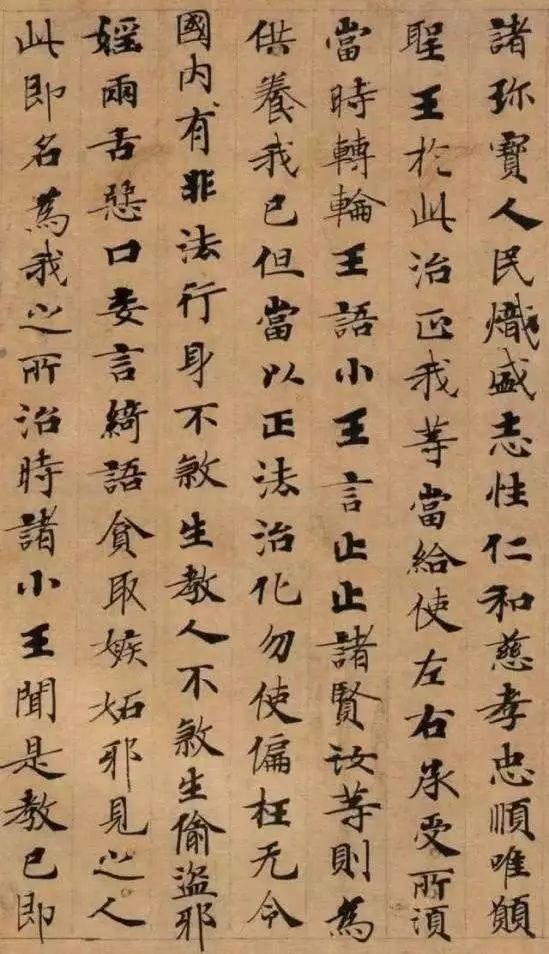 諸珎寶人民熾盛志性仁和慈孝忠順唯願
聖王於此治匝我等當給使左右承受所須
當時轉輪王語小王言止止諸賢汝等則為
供養我已但當以正法治化勿使偏枉无令
國內有非法行身不煞生教人不煞生偷盜邪
婬兩舌惡口妄言綺語貪取嫉妬邪見之人
此即名為我之所治時諸小王聞是教已即